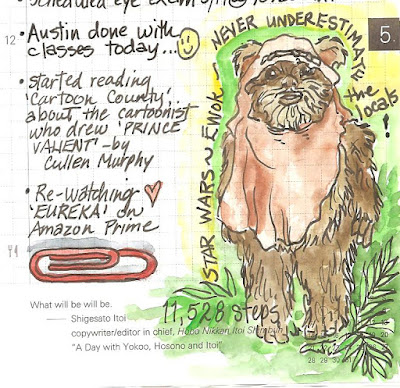 scheduled eye exam
12
• Austin done with
classes today...
• started reading
'Cartoon County'
about the cartoonist
who drew 'PRINCE
VALIENT' - by
Cullen Murphy
• Re-Watching
'EUREKA' on
Amazon Prime
STAR WARS ~ EWOK ~ NEVER UNDERESTIMATE
the
locals
!
5
What will be will be.
Shigesato Itoi
11,528 steps
copywriter/editor in chief, Hobo Nikkan Itoi Shimbun
"A Day with Yokoo, Hosono and Itoi"
28 29 30